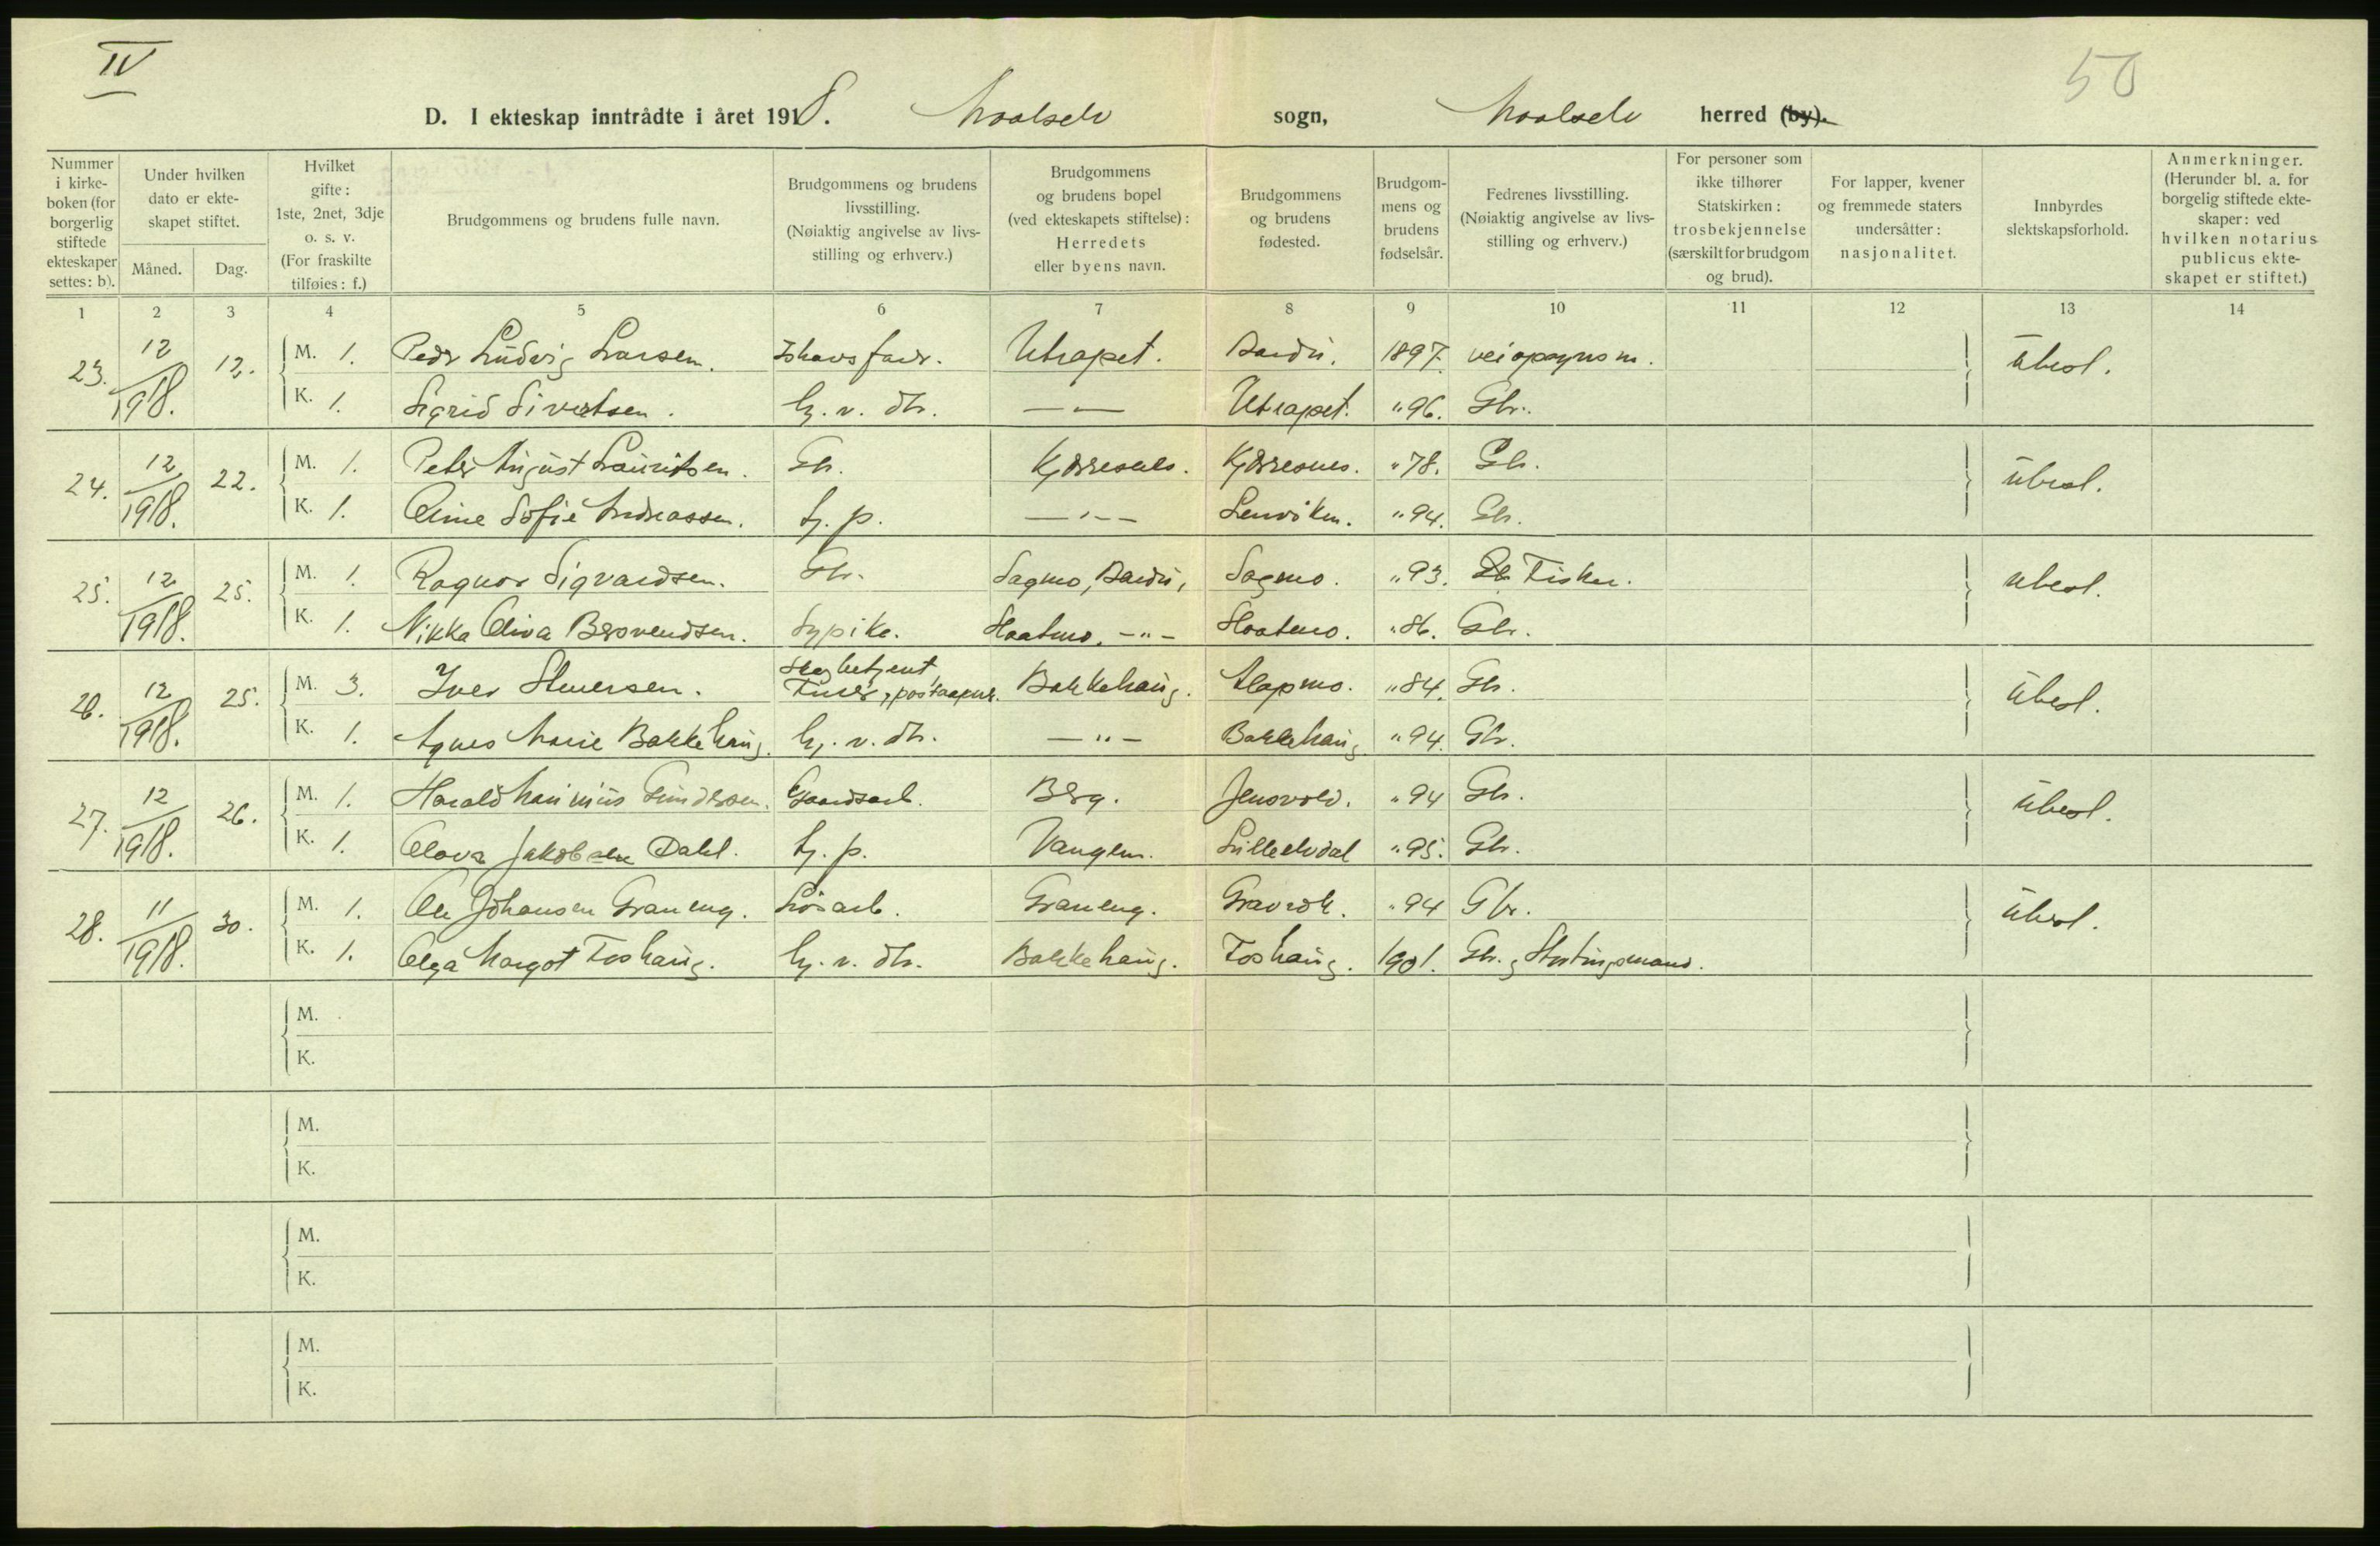 IV
50
D. I ekteskap inntrådte i året 1918. Maalselv sogn, Maalselv herred (by).
Nummer i kirkeboken (for borgerlig stiftede ekteskaper settes: b).
Under hvilken dato er ekteskapet stiftet.
Måned. Dag.
Hvilket gifte: 1ste, 2net, 3dje o. s. v. (For fraskilte tilføies: f.)
Brudgommens og brudens fulle navn.
Brudgommens og brudens livsstilling. (Nøiaktig angivelse av livsstilling og erhverv.)
Brudgommens og brudens bopel (ved ekteskapets stiftelse): Herredets eller byens navn.
Brudgommens og brudens fødested.
Brudgommens og brudens fødselsår.
Fedrenes livsstilling. (Nøiaktig angivelse av livsstilling og erhverv.)
For personer som ikke tilhører Statskirken: trosbekjennelse (særskilt for brudgom og brud).
For lapper, kvener og fremmede staters undersåtter: nasjonalitet.
Innbyrdes slektskapsforhold.
Anmerkninger. (Herunder bl. a. for borgelig stiftede ekteskaper: ved hvilken notarius publicus ekteskapet er stiftet.)
1 2 3 4 5 6 7 8 9 10 11 12 13 14
23. 12/1918. 12. M. 1. Peder Ludvig Larsen. Ishavsfarer. Utrapet. Bardu. 1897. veiopsynsm. Ubesl.
K. 1. Sigrid Sivertsen. hj. v. dtr. — — Utrapet. "96. Gbr.
24. 12/1918. 22. M. 1. Peter August Lauritsen. Gbr. Kjærresnes. Kjærresnes. "78. Gbr. Ubesl.
K. 1. Oline Sofie Andreassen. tj. p. — " — Lenviken. "94. Gbr.
25. 12/1918. 25. M. 1. Ragnar Sigvardsen. Gbr. Sagmo, Bardu, Sagmo. "93. Fisker. Ubesl.
K. 1. Nikka Oliva Bersvendsen. Sypike. Slaatmo. — " — Slaatmo. "86. Gbr.
26. 12/1918. 25. M. 3. Iver Iversen. Skogbetjent, postaapner. Bakkehaug. Alapmo. "84. Gbr. Ubesl.
K. 1. Agnes Marie Bakkehaug. hj. v. dtr. — " — Bakkehaug "94. Gbr.
27. 12/1918. 26. M. 1. Harald Gundersen. Gaardsarb. Berg. Jensvold. "94 Gbr. Ubesl.
K. 1. Olava Jakobsen Dahl. tj. p. Vangen. Lilleelvdal "95. Gbr.
28. 11/1918. 30. M. 1. Ole Johansen Graneng. Løsarb. Graneng. Gravrok. "94 Gbr. Ubesl.
K. 1. Olga Margot Foshaug. hj. v. dtr. Bakkehaug. Foshaug. 1901. Gbr., Stortingsmand.
M.
K.
M.
K.
M.
K.
M.
K.